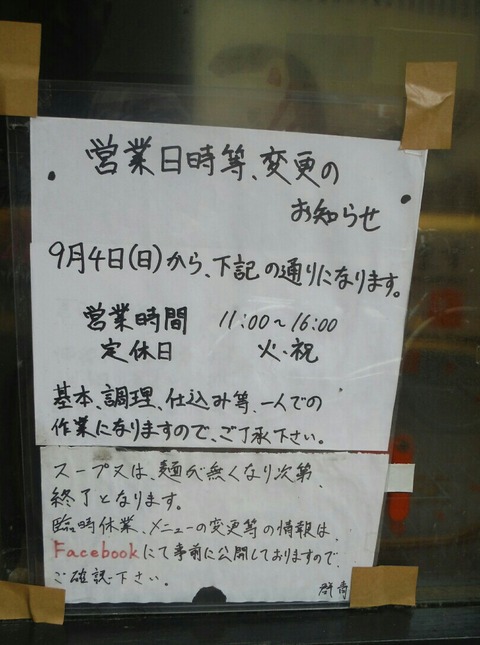 営業日時等、変更の
お知らせ
9月4日(日)から、下記の通りになります。
営業時間 11:00～16:00
定休日 火・祝
基本、調理、仕込み等、一人での
作業になりますので、ご了承下さい。
スープ又は、麺が無くなり次第、
終了となります。
臨時休業、メニューの変更等の情報は、
Facebookにて事前に公開しておりますので、
ご確認下さい。
群青